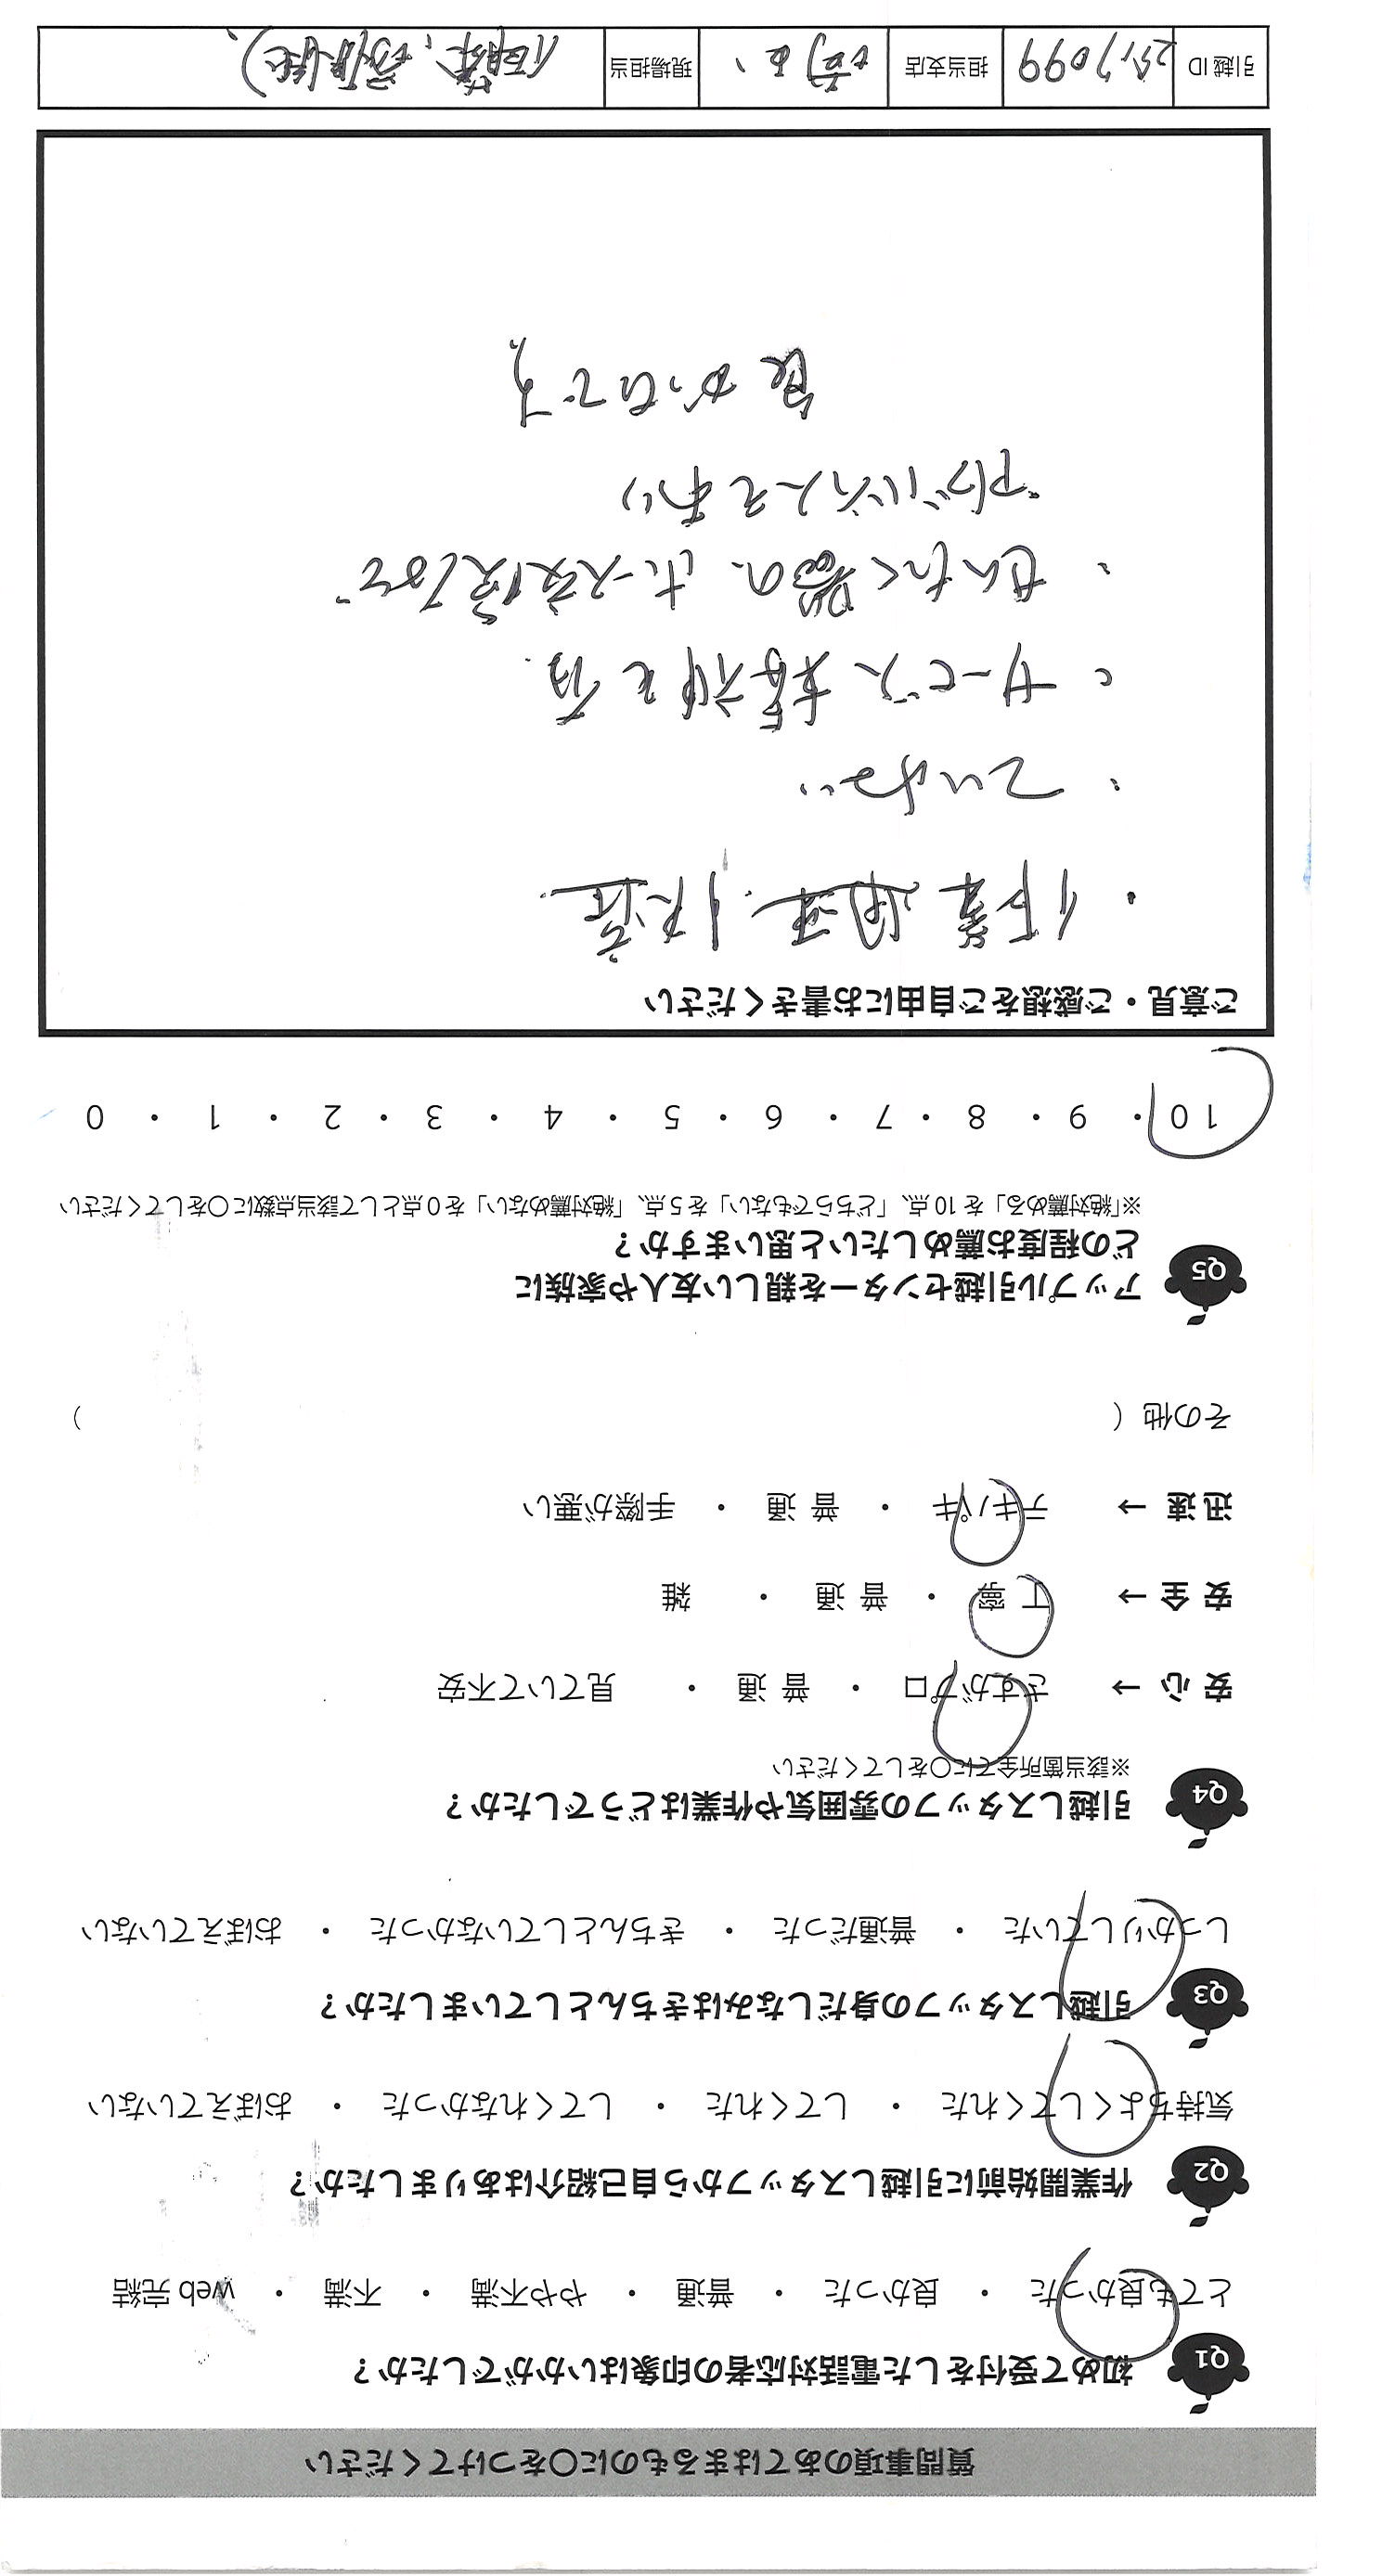 質問事項のあてはまるものに〇をつけてください
Q1 初めて受付をした電話対応者の印象はいかがでしたか？
とても良かった ・ 良かった ・ 普通 ・ やや不満 ・ 不満 ・ web 完結
Q2 作業開始前に引越しスタッフから自己紹介はありましたか？
気持ちよくしてくれた ・ してくれた ・ してくれなかった ・ おぼえていない
Q3 引越しスタッフの身だしなみはきちんとしていましたか？
しっかりしていた ・ 普通だった ・ きちんとしていなかった ・ おぼえていない
Q4 引越しスタッフの雰囲気や作業はどうでしたか？
※該当箇所全てに〇をしてください
安心 → さすがプロ ・ 普通 ・ 見ていて不安
安全 → 丁寧 ・ 普通 ・ 雑
迅速 → テキパキ ・ 普通 ・ 手際が悪い
その他（ ）
Q5 アップル引越センターを親しい友人や家族に
どの程度お薦めしたいと思いますか？
※「絶対薦める」を 10 点、「どちらでもない」を 5 点、「絶対薦めない」を 0 点として該当点数に〇をしてください
10 ・ 9 ・ 8 ・ 7 ・ 6 ・ 5 ・ 4 ・ 3 ・ 2 ・ 1 ・ 0
ご意見・ご感想をご自由にお書きください
・作業 迅速
・ていねい
・サービス精神を有
・せんたく器の ホース交換まで
アドバイスを
良かったです
引越 ID 担当支店 現場担当